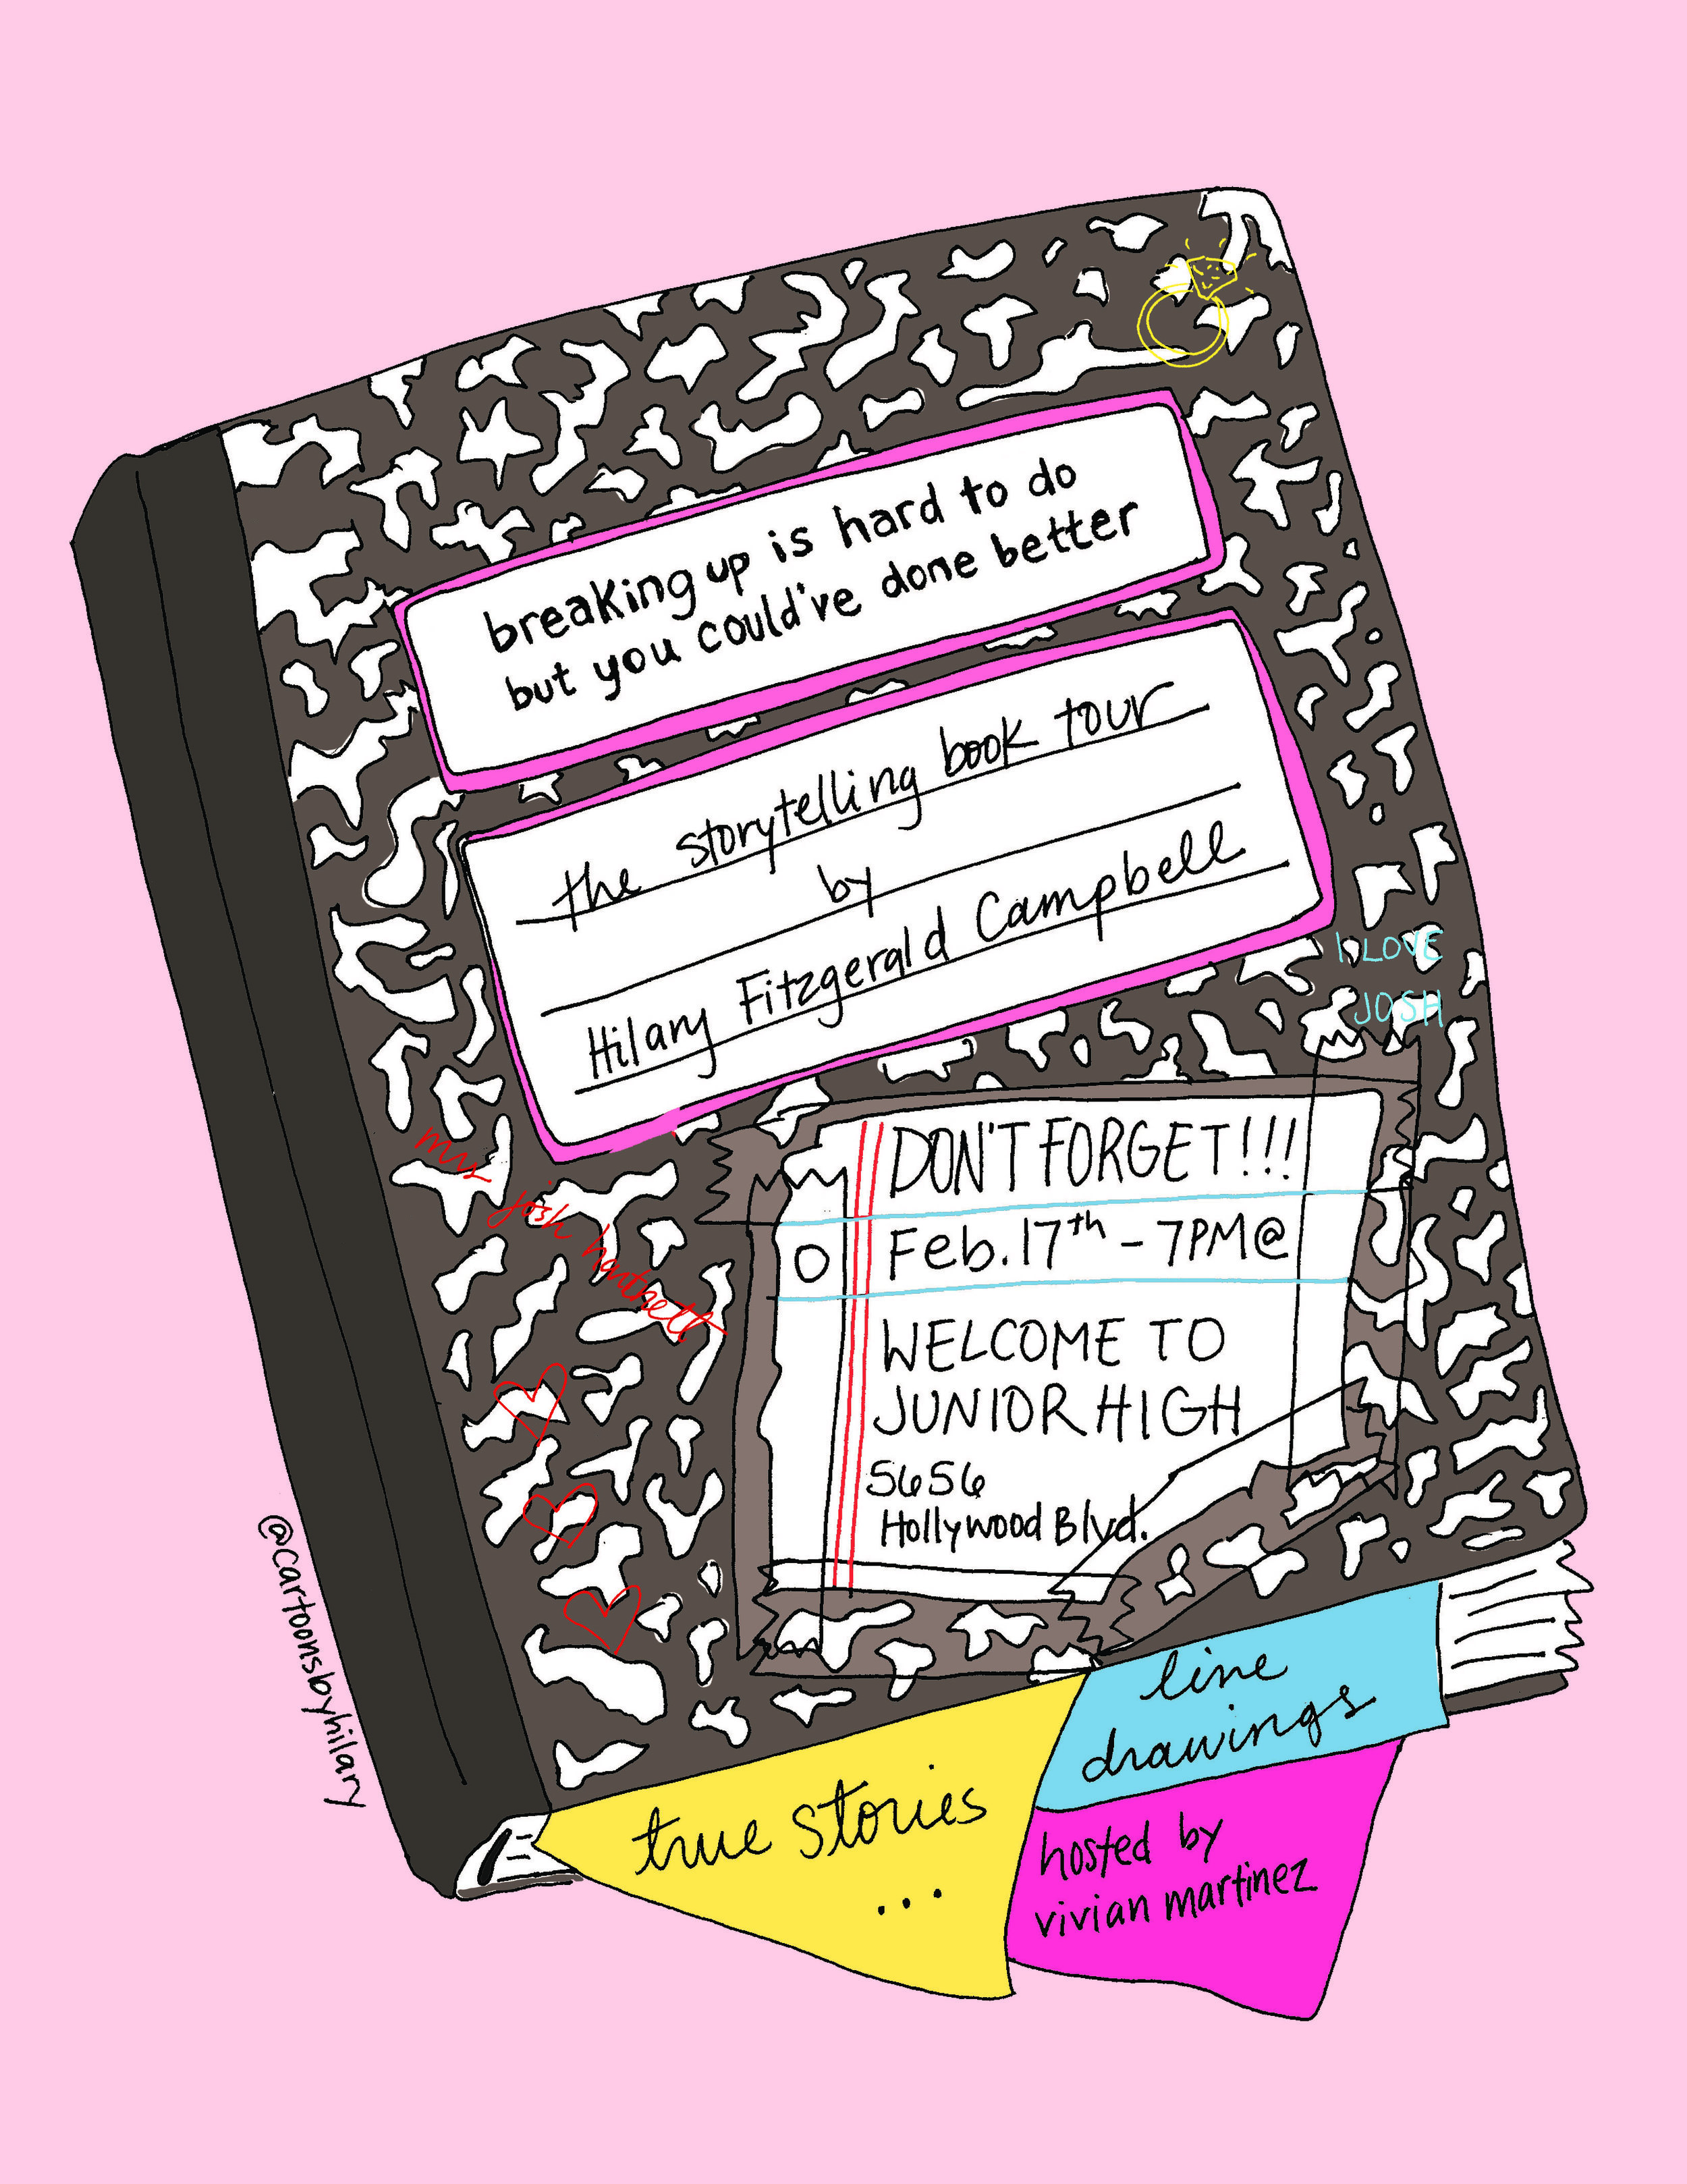 breaking up is hard to do
but you could've done better
the storytelling book tour
by
Hilary Fitzgerald Campbell
I LOVE
JOSH
my josh hartnett
DON'T FORGET!!!
Feb. 17th - 7PM @
WELCOME TO
JUNIOR HIGH
5656
Hollywood Blvd.
@cartoonsbyhilary
true stories
...
line
drawings
hosted by
vivian martinez